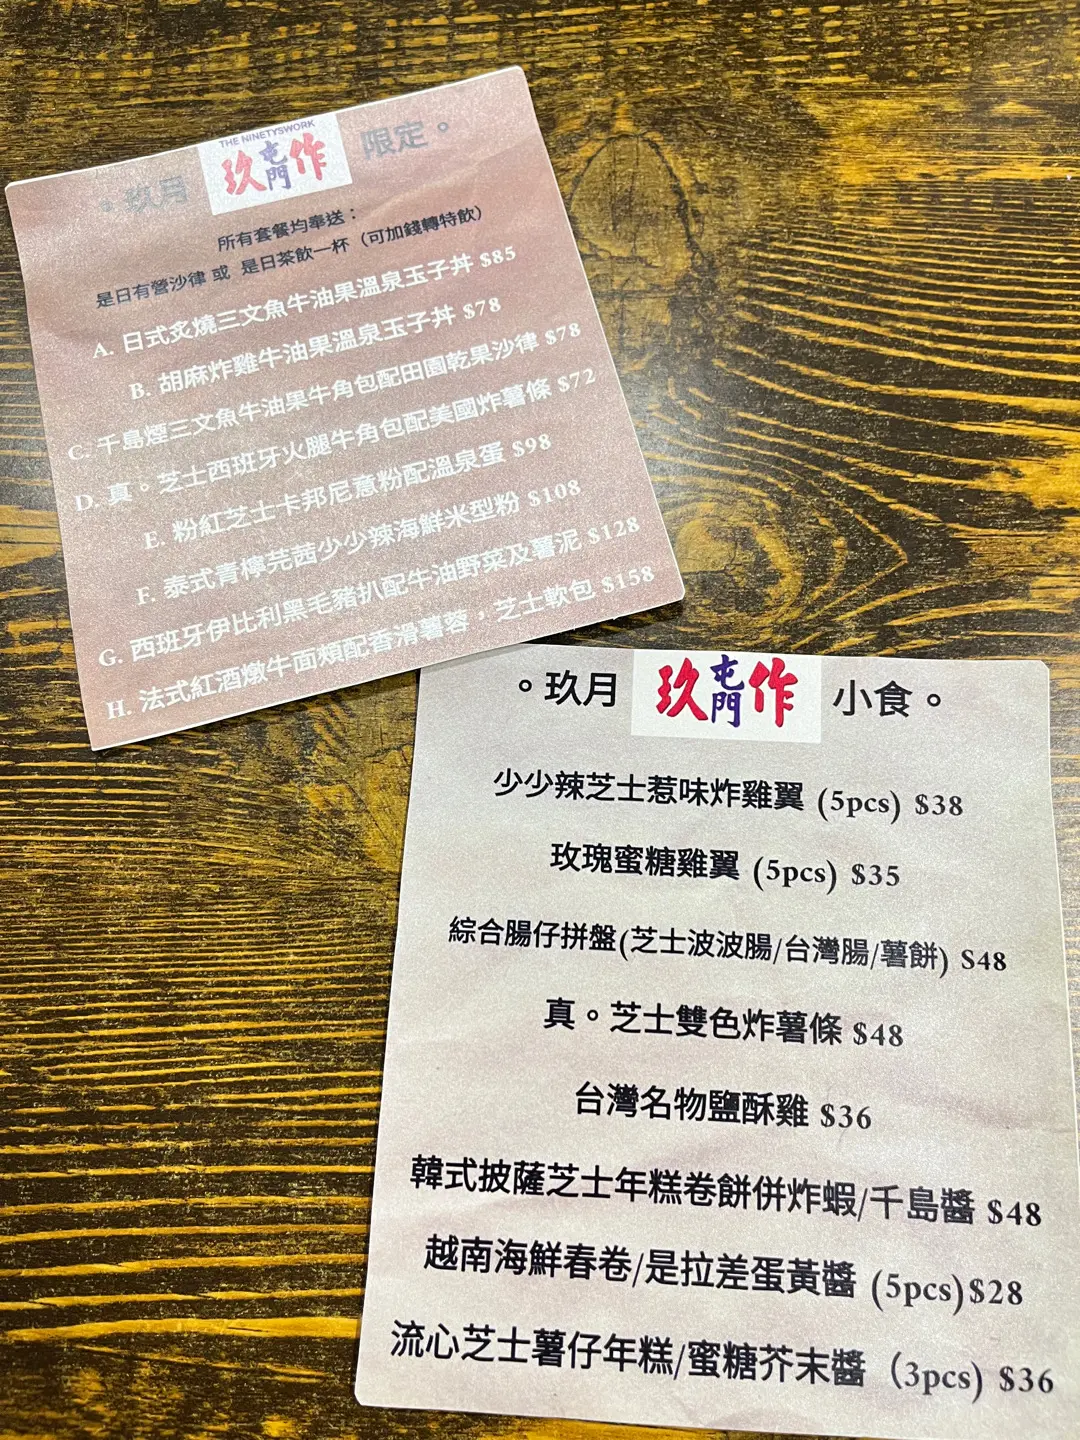 THE NINETYSWORK
。玖月 玖屯門作 限定。
所有套餐均奉送：
是日有營沙律 或 是日茶飲一杯（可加錢轉特飲）
A. 日式炙燒三文魚牛油果溫泉玉子丼 $85
B. 胡麻炸雞牛油果溫泉玉子丼 $78
C. 千島煙三文魚牛油果牛角包配田園乾果沙律 $78
D. 真。芝士西班牙火腿牛角包配美國炸薯條 $72
E. 粉紅芝士卡邦尼意粉配溫泉蛋 $98
F. 泰式青檸芫茜少少辣海鮮米型粉 $108
G. 西班牙伊比利黑毛豬扒配牛油野菜及薯泥 $128
H. 法式紅酒燉牛面頰配香滑薯蓉，芝士軟包 $158
。玖月 玖屯門作 小食。
少少辣芝士惹味炸雞翼 (5pcs) $38
玫瑰蜜糖雞翼 (5pcs) $35
綜合腸仔拼盤(芝士波波腸/台灣腸/薯餅) $48
真。芝士雙色炸薯條 $48
台灣名物鹽酥雞 $36
韓式披薩芝士年糕卷餅併炸蝦/千島醬 $48
越南海鮮春卷/是拉差蛋黃醬 (5pcs)$28
流心芝士薯仔年糕/蜜糖芥末醬（3pcs) $36